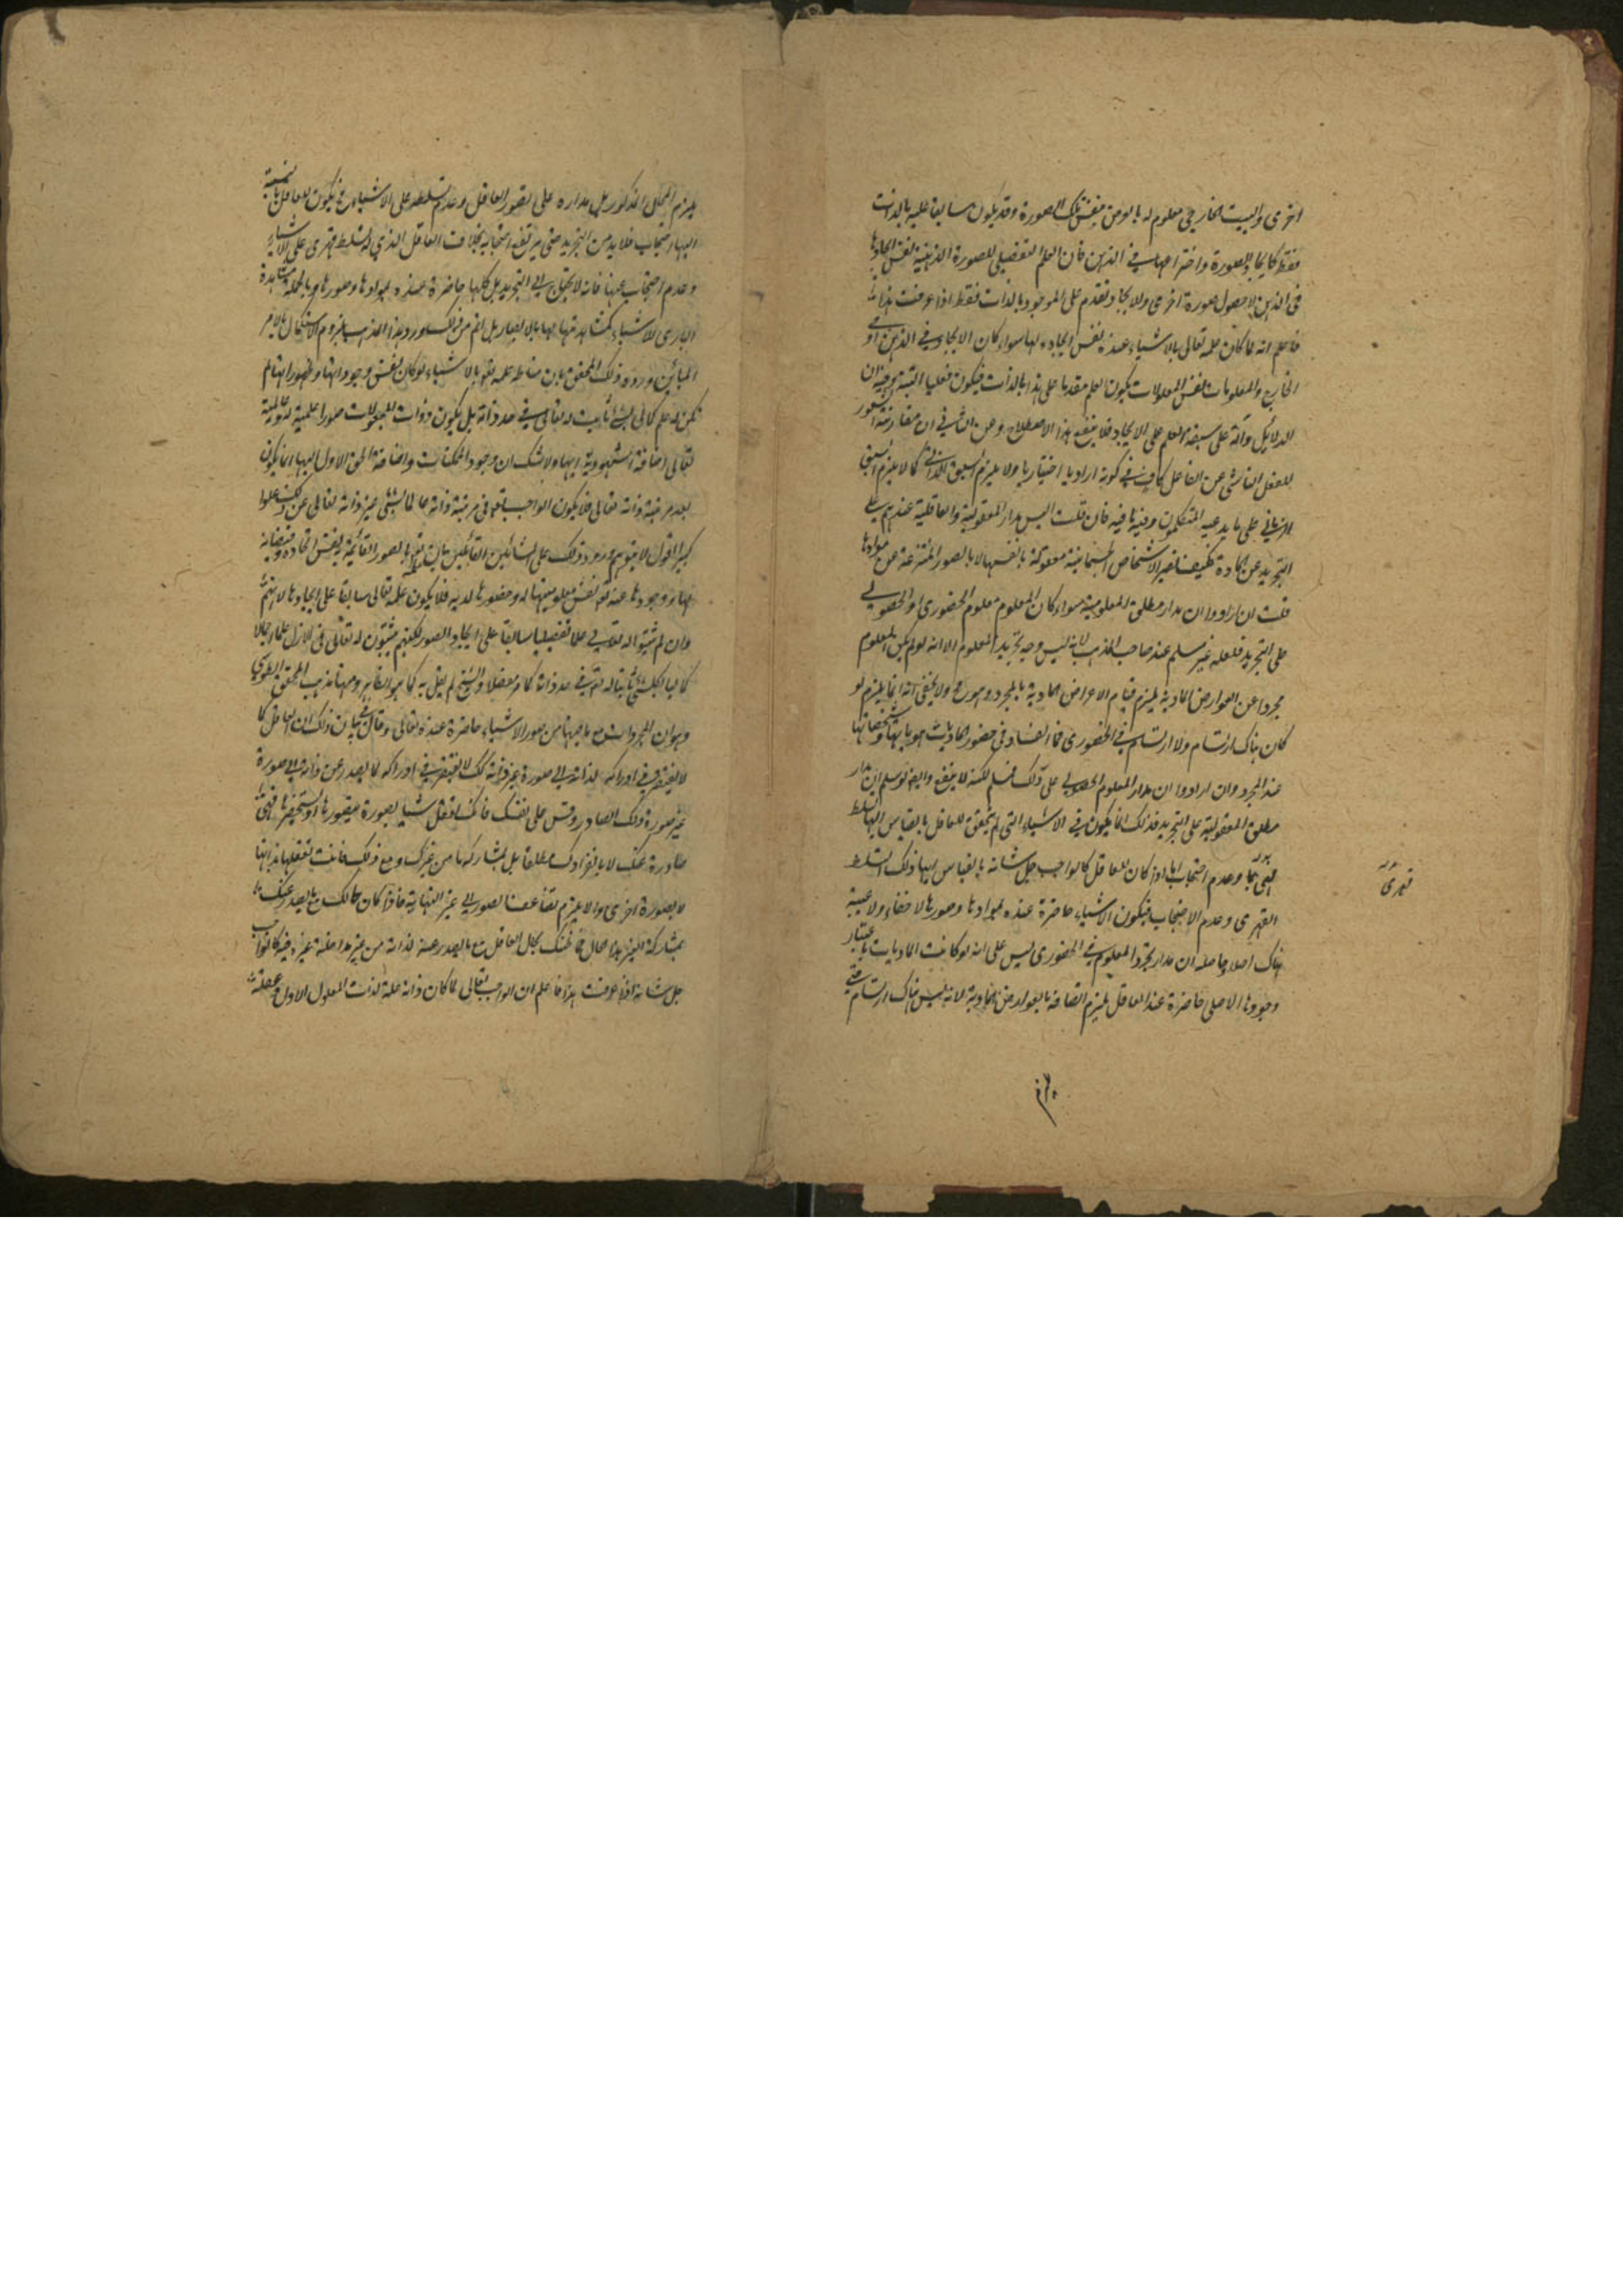 اخرى والبيت الخارجي معلوم له بالعرض بنفس تلك الصورة وقد يكون سابقا عليه بالذات
فقط كايجاد الصورة واختراعها في الذهن فان العلم التفصيلي للصورة الذهنية نفس ايجادها
في الذهن لا حصول صورة اخرى والايجاد تقدم على الموجود بالذات فقط اذا عرفت هذا
فاعلم انه لما كان علمه تعالى بالاشياء عنده نفس ايجاده لها سواء كان الايجاد في الذهن او في
الخارج والمعلومات نفس المعلولات يكون العلم مقدما على هذا بالذات فيكون فعليا البتة وفيه ان
الدلائل دالة على سبقة العلم على الايجاد فلا ينفع هذا الاصطلاح وعن الثاني ان مقارنة الشعور
للفعل الناشي عن الفاعل كاف في كونه اراديا اختياريا ولا يلزم السبق الذاتي كما لا يلزم السبق
الزماني على ما يدعيه المتكلمون وفيه ما فيه فان قلت اليس مدار المعقولية والعاقلية عندهم على
التجريد عن المادة فكيف تصير الاشخاص الجسمانية معقولة بانفسها لا بالصور المنتزعة من موادها
قلت ان ارادوا ان مدار مطلق المعلومية سواء كان المعلوم معلوم الحضوري او الحصولي
على التجريد فلعله غير مسلم عند صاحب المذهب لانه ليس وجه تجريد المعلوم الا انه لو لم يكن المعلوم
مجردا عن العوارض المادية يلزم قيام الاعراض المادية بالمجرد وهو مح ولا يخفى انه انما يلزم لو
كان هناك ارتسام ولا ارتسام في الحضوري فما الفساد في حضور الماديات بهوياتها وتشخصاتها
عند المجرد وان ارادوا ان مدار المعلوم الحصولي على ذلك فمسلم لكنه لا ينفع وايضا لو سلم ان مدار
مطلق المعقولية على التجريد فذلك انما يكون في الاشياء التي لم يتحقق للعاقل بالقياس اليها تسلط
قهري
وعدم احتجاب اما اذا كان للعاقل كالواجب جل شانه بالقياس اليها ذلك التسلط
القهري وعدم الاحتجاب فيكون الاشياء حاضرة عنده بموادها وصورها لا خفاء ولا غيبة
هناك اصلا حاصله ان مدار تجرد المعلوم في الحضوري ليس على انه لو كانت الماديات باعتبار
وجودها الاصلي حاضرة عند العاقل يلزم اتصافه بالعوارض المادية لانه ليس هناك ارتسام حتى
يلزم المحال المذكور بل مداره على قصور العاقل وعدم تسلطه على الاشياء فيكون للعاقل بالنسبة
اليها احتجاب فلا بد من التجريد حتى يرتفع احتجابه بخلاف العاقل الذي له تسلط قهري على الاشياء
وعدم احتجاب عنها فانه لا يحتاج الى التجريد بل كلها حاضرة عنده بموادها وصورها وبالجملة مشاهدة
الباري للاشياء كمشاهدتها بالابصار بل اتم من ذلك ورد هذا المذهب بلزوم الاستكمال بالامر
المبائن ورد ذلك المحقق بان مناط علمه تعالى بالاشياء لو كان نفس وجوداتها وظهوراتها لم
يكن له علم كمالي بشئ ثابت له تعالى في حد ذاته بل يكون ذوات المجعولات صورا علمية له وعالمية
تعالى اضافة شهودية اليها ولا شك ان وجود الممكنات واضافة الحق الاول اليها انما يكون
بعد مرتبة ذاته تعالى فلا يكون الواجب تعالى في مرتبة ذاته عالما بشئ غير ذاته تعالى عن ذلك علوا
كبيرا اقول لا يتوهم ورود ذلك على المشائين القائلين بان علمه بالصور القائمة بنفس
وان لم يثبتوا له تعالى علما تفصيليا سابقا على ايجاد الصور لكنهم يثبتون له تعالى في الازل علما اجماليا
كماليا بكل شئ ثابتا له تعالى في حد ذاته كما مر مفصلا والشيخ لم يقل به كما هو الظاهر ومنها مذهب المحقق الطوسي
وهو ان الجواهر مع ما فيها من صور الاشياء حاضرة عنده تعالى وقال في بيان ذلك ان العاقل كما
لا يفتقر في ادراكه لذاته الى صورة غير ذاته كذلك لا يفتقر في ادراكه لما يصدر عن ذاته الى صورة
غير صورة ذلك الصادر وقس على نفسك فانك تعقل شيئا بصورة تتصورها او تستحضرها فهي
صادرة عنك لا بانفرادك مطلقا بل بمشاركة ما من غيرك ومع ذلك فانت تعقلها بذاتها
لا بصورة اخرى والا يلزم تضاعف الصور الى غير النهاية فاذا كان حالك مع ما يصدر عنك
بمشاركة الغير هذا الحال فما ظنك بحال العاقل مع ما يصدر عنه لذاته من غير مداخلة غيره فيه كالواجب
جل شانه اذا عرفت هذا فاعلم ان الواجب تعالى لما كان ذاته علة لذات المعلول الاول وتعقله